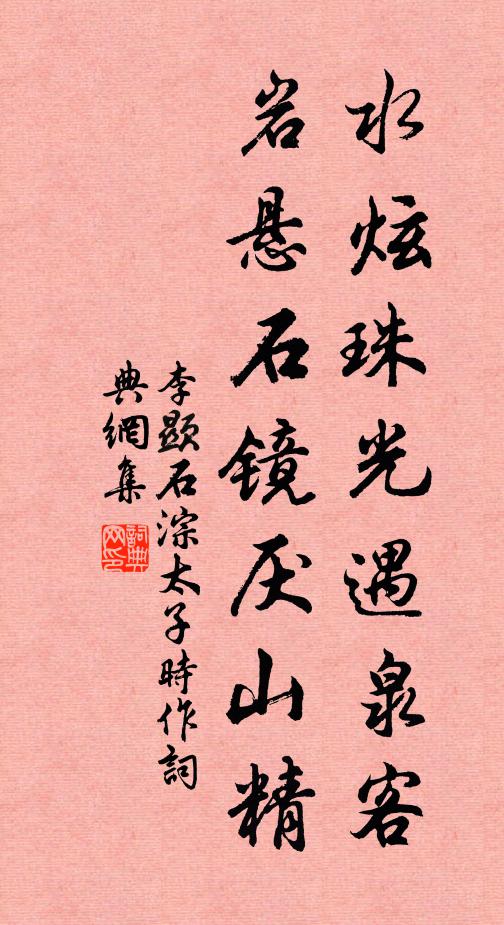 水炫珠光遇泉客
岩悬石镜厌山精
李顯石淙太子時作詞
典網集
詞典
网印